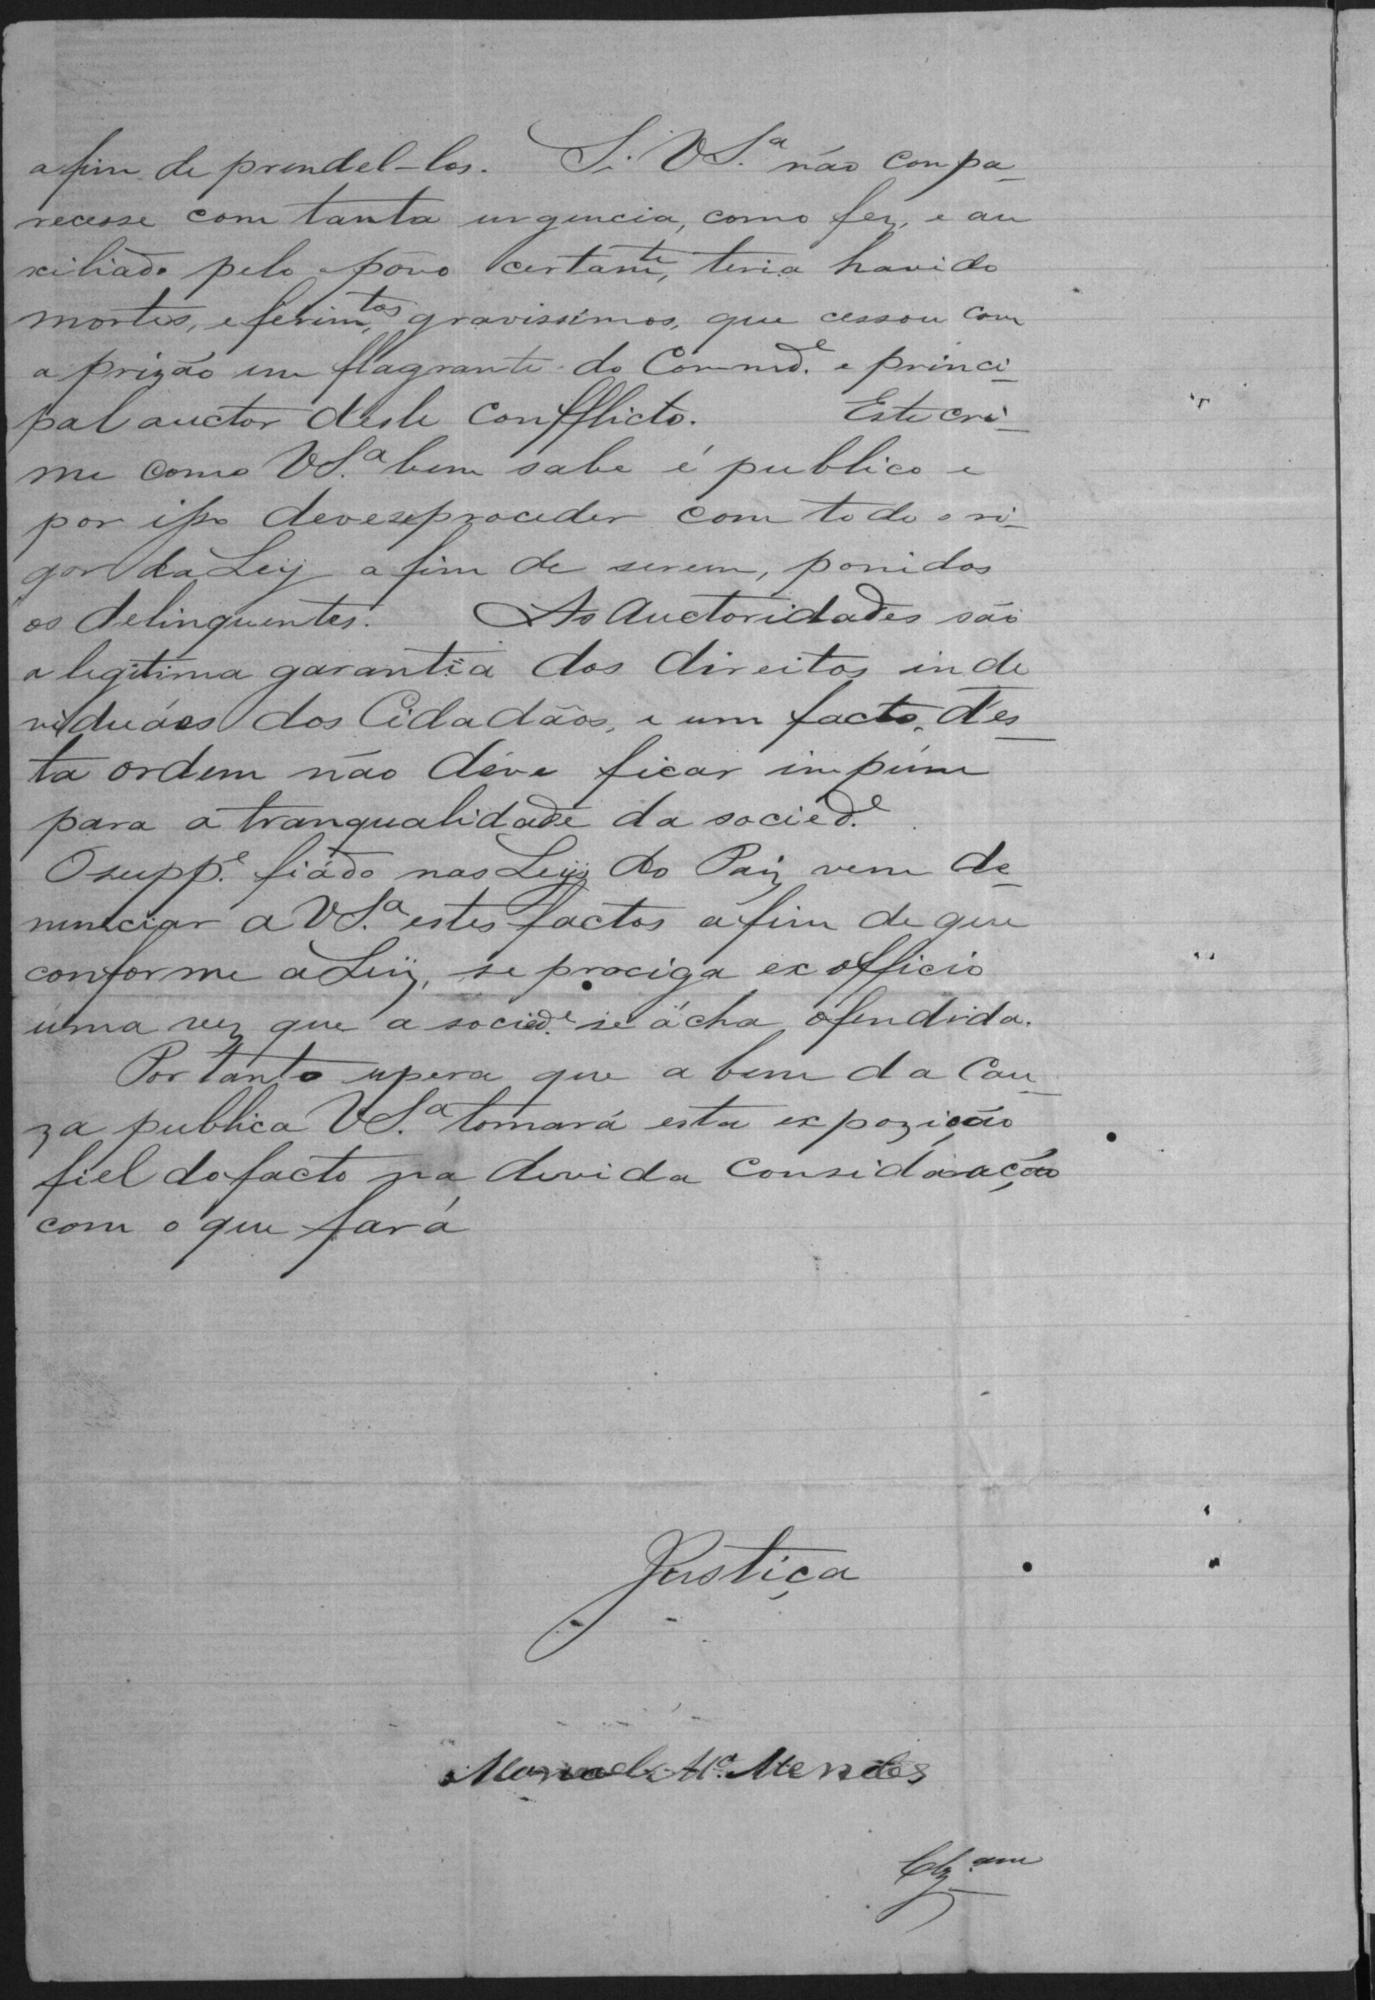 a fim de prendel-los. Si V S.ª não conpa-
recesse com tanta urgencia, como fez, e au
xiliado pelo pôvo certamte, teria havido
mortes, e ferimtos gravissimos, que cessou com
a prizão em flagrante do Commde. e princi-
pal auctor deste confflicto. Este cri-
me como V S.ª bem sabe é publico e
por isso deveseproceder com todo o ri-
gor da Leÿ a fim de serem, ponidos
os delinquentes. As Auctoridades são
a legitima garantia dos direitos inde
viduáes dos Cidadãos, e um facto, d'es-
ta ordem não déve ficar impúne
para a tranqualidade da sociede.
O suppe. fiádo nas Leÿs do Paiz vem de-
nunciar a V S.ª estes factos a fim de que
conforme a Leÿ, se prociga ex officio
uma vez que a sociede. se ácha ofendida.
Por tanto espera que a bem da Cau-
za publica V S.ª tomará esta expozição
fiel do facto na devida considaração
com o que fará
Justiça
Manoel Mª. Mendes